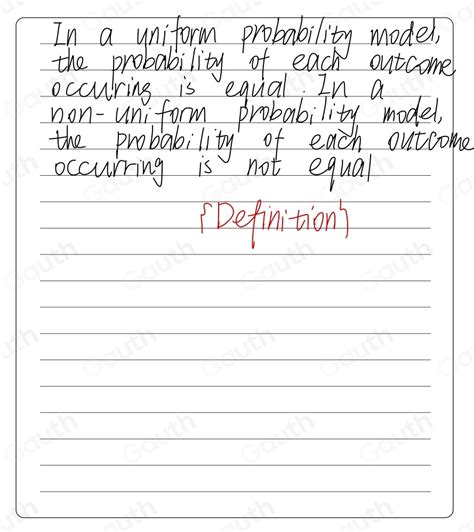 In a uniform probability model,
the probability of each outcome
occuring is equal. In a
non-uniform probability model,
the probability of each outcome
occurring is not equal
{Definition}